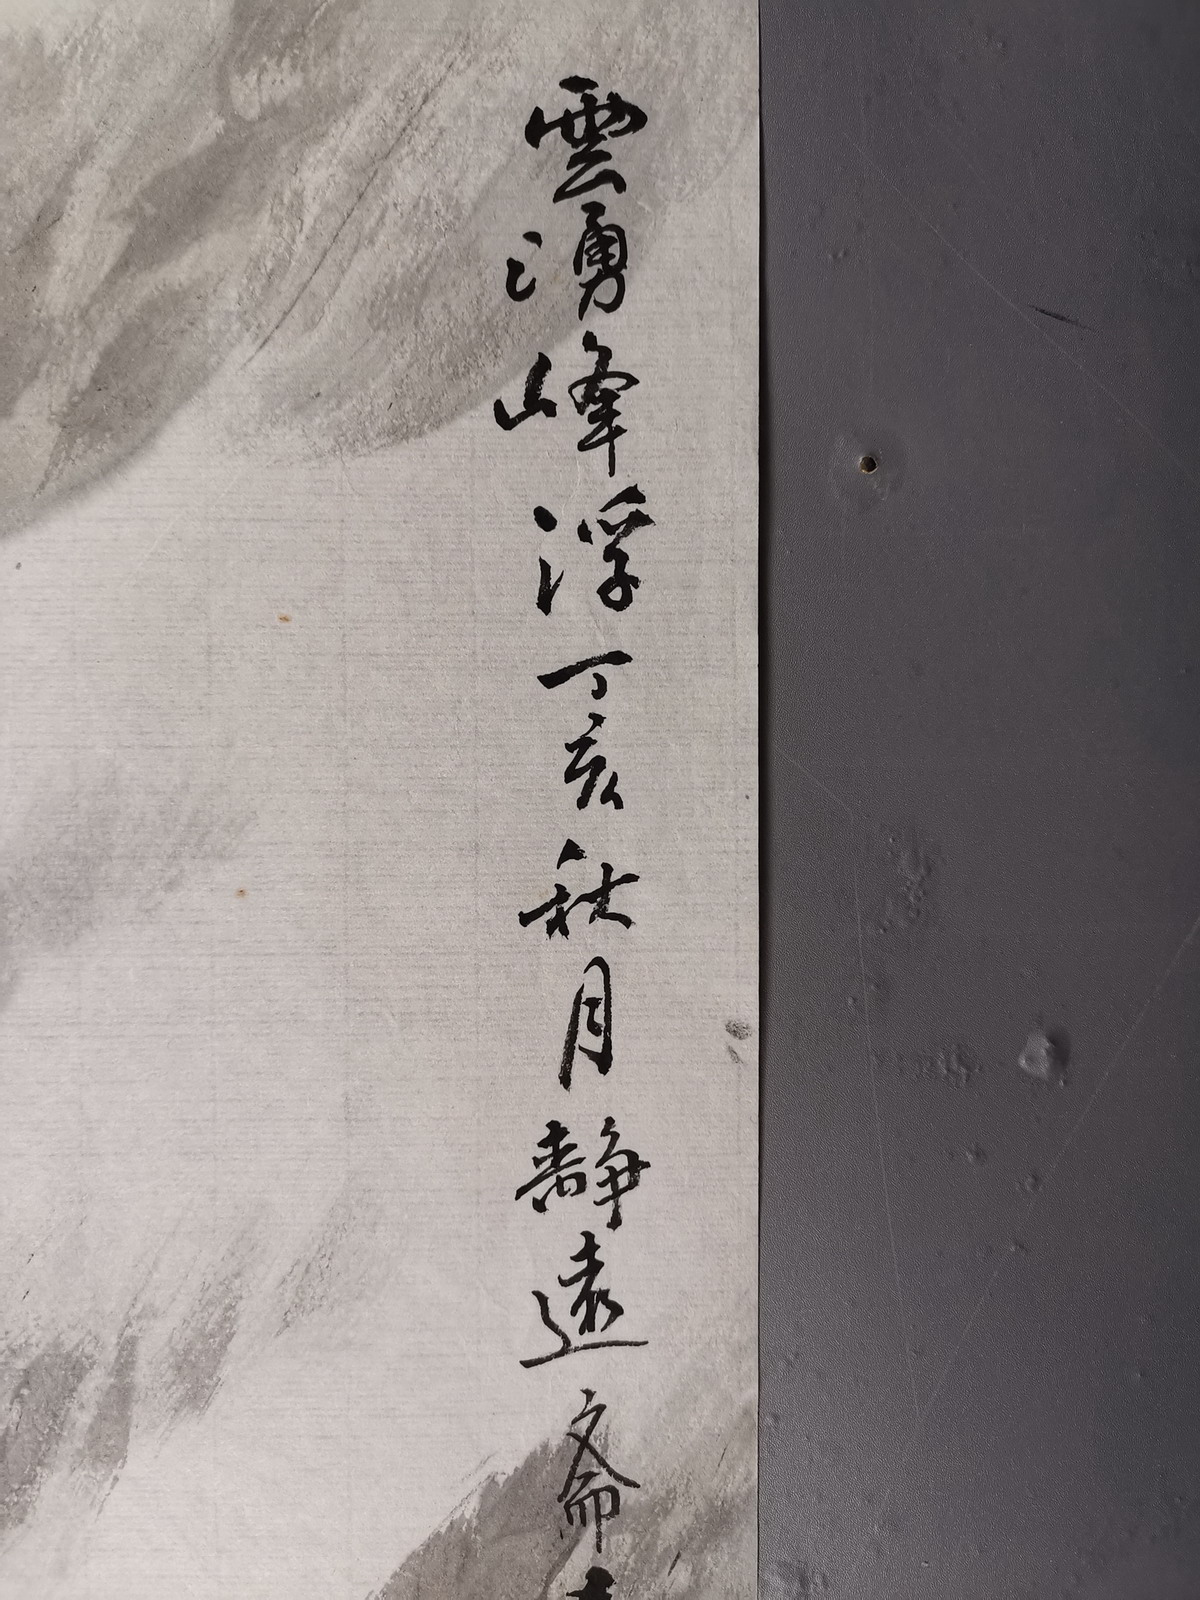 雲湧峰浮丁亥秋月靜遠斎